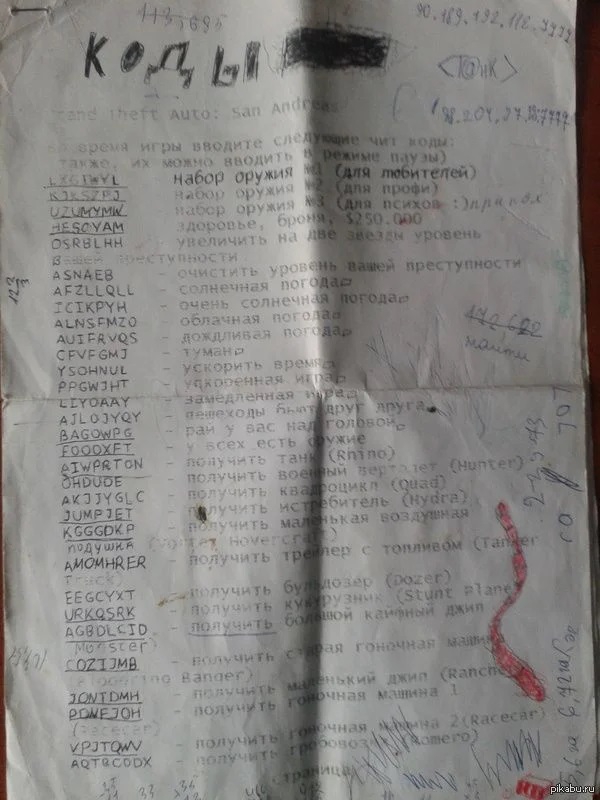 КОДЫ
90.189.192.
<Т@нК>
Grand Theft Auto: San Andreas
во время игры вводите следующие чит коды:
также, их можно вводить в режиме паузы)
LXGIWYL набор оружия №1 (для любителей)
KJKSZPJ набор оружия №2 (для профи)
UZUMYMW набор оружия №3 (для психов :) прикол
HESOYAM здоровье, броня, $250.000
OSRBLHH увеличить на две звезды уровень
вашей преступности
ASNAEB - очистить уровень вашей преступности
AFZLLQLL - солнечная погода
ICIKPYH - очень солнечная погода
ALNSFMZO - облачная погода
AUIFRVQS - дождливая погода
CFVFGMJ - туман
YSOHNUL - ускорить время
PPGWJHT - ускоренная игра
LIYOAAY - замедленная игра
AJLOJYQY - пешеходы бьют друг друга
BAGOWPG - рай у вас над головой
FOOOXFT - у всех есть оружие
AIWPRTON - получить танк (Rhino)
OHDUDE - получить военный вертолет (Hunter)
AKJJYGLC - получить квадроцикл (Quad)
JUMPJET - получить истребитель (Hydra)
KGGGDKP - получить маленькая воздушная
подушка (Vortex Hovercraft)
AMOMHRER - получить трейлер с топливом (Tanker
Truck)
EEGCYXT - получить бульдозер (Dozer)
URKQSRK - получить кукурузник (Stunt Plane)
AGBDLCID - получить большой каифный джип
(Monster)
CQZIJMB - получить старая гоночная машина
(Bloodring Banger)
JQNTDMH - получить маленький джип (Rancher)
PDNFJOH - получить гоночная машина 1
(Racecar)
VPJTQWV - получить гоночная машина 2(Racecar)
AQTBCODX - получить гробовозку (Romero)
страница
найти
pikabu.ru